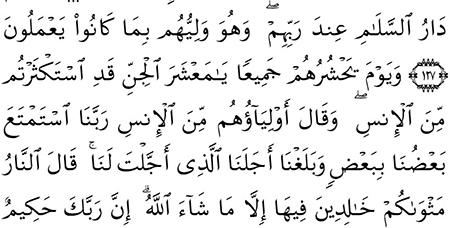 دَارُ ٱلسَّلَٰمِ عِندَ رَبِّهِمْ ۖ وَهُوَ وَلِيُّهُم بِمَا كَانُوا۟ يَعْمَلُونَ
﴿١٢٧﴾ وَيَوْمَ يَحْشُرُهُمْ جَمِيعًا يَٰمَعْشَرَ ٱلْجِنِّ قَدِ ٱسْتَكْثَرْتُم
مِّنَ ٱلْإِنسِ ۖ وَقَالَ أَوْلِيَآؤُهُم مِّنَ ٱلْإِنسِ رَبَّنَا ٱسْتَمْتَعَ
بَعْضُنَا بِبَعْضٍ وَبَلَغْنَآ أَجَلَنَا ٱلَّذِىٓ أَجَّلْتَ لَنَا ۚ قَالَ ٱلنَّارُ
مَثْوَىٰكُمْ خَٰلِدِينَ فِيهَآ إِلَّا مَا شَآءَ ٱللَّهُ ۗ إِنَّ رَبَّكَ حَكِيمٌ